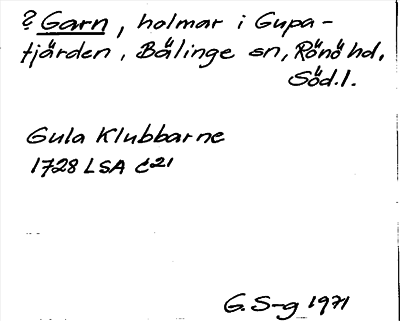 ? Garn, holmar i Gupa-
fjärden, Bälinge sn, Rönö hd,
Söd.l.
Gula Klubbarne
1728 LSA C21
G. S-g 1971